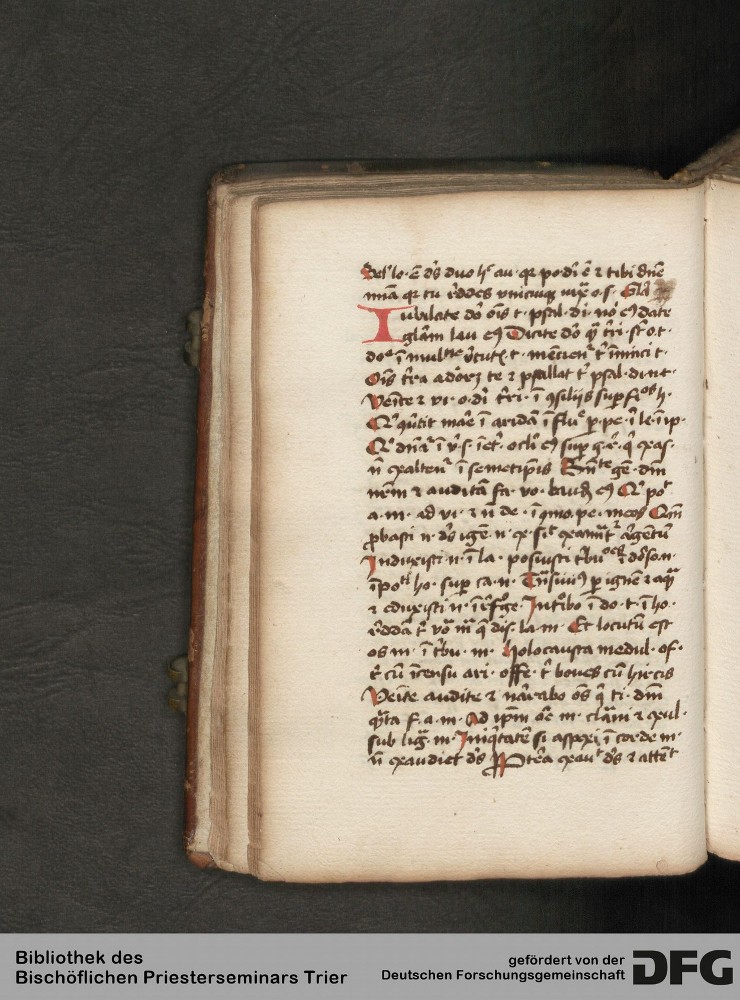 Sel' le· E ds duo h' au· qr po· di ē ⁊ tibi dn̄e
mīa qr tu r̄ddes vnicuiq iux̄ o· s· Gl̄a
Iubilate dō oīs t· psal· di· nō eꝯ date
gl̄am lau eꝯ Dicite dō q̄ t̄ri· st' o· t·
do ī mul v̄tut· t· mēcien' t' īimici t·
Oīs t̄ra adorꝫ te ⁊ psallat t' psal· di n· t·
Ven̄te ⁊ vi· o· di t̄ri· ī ꝯsilijs sup fi h·
Q' ꝯu̇tit mar̄e ī aridā ī flu' p· pe· ī le· ī ip·
Q' dn̄a' ī v̄· s· ī et'· oculi eꝯ sup g· r· q̄ exas·
n̄ exalten' ī semetip̄is gē· dm̄
nr̄m ⁊ auditā fa· vo· laud eꝯ Q' po'
a· m· ad vi· ⁊ n̄ de· ī ꝯmo· pe· meos Qm̄
ꝓbasti n· ds igē· n· e· sic' examīat' argētū
Induxisti n· ī la· posuisti t'bu ī dorso· n·
īpo' ho· sup ca· n· Tn̄siuimꝯ p ignē ⁊ aqu̅
⁊ eduxisti n· ī r̄f'ge· Int'bo ī do· t· ī ho·
r̄ddā t' vo m̄ q̄ dis· la· m· Et locutū est
os m· ī t'bu· m· Holocausta medul· of·
t' cū īcensu ari· offe· t' boues cū hircis
Ven̄te audite ⁊ nārabo ōs q̄ ti· dm̄
q̄ta f· a· m· Ad ip̄m or̄e m· clāui ⁊ exul·
sub lig̅· m· Iniq̄tatē si aspexi ī corde m·
n̄ exaudiet ds Pt̄ea exau' ds ⁊ attēt'
Bibliothek des
Bischöflichen Priesterseminars Trier
gefördert von der
Deutschen Forschungsgemeinschaft
DFG